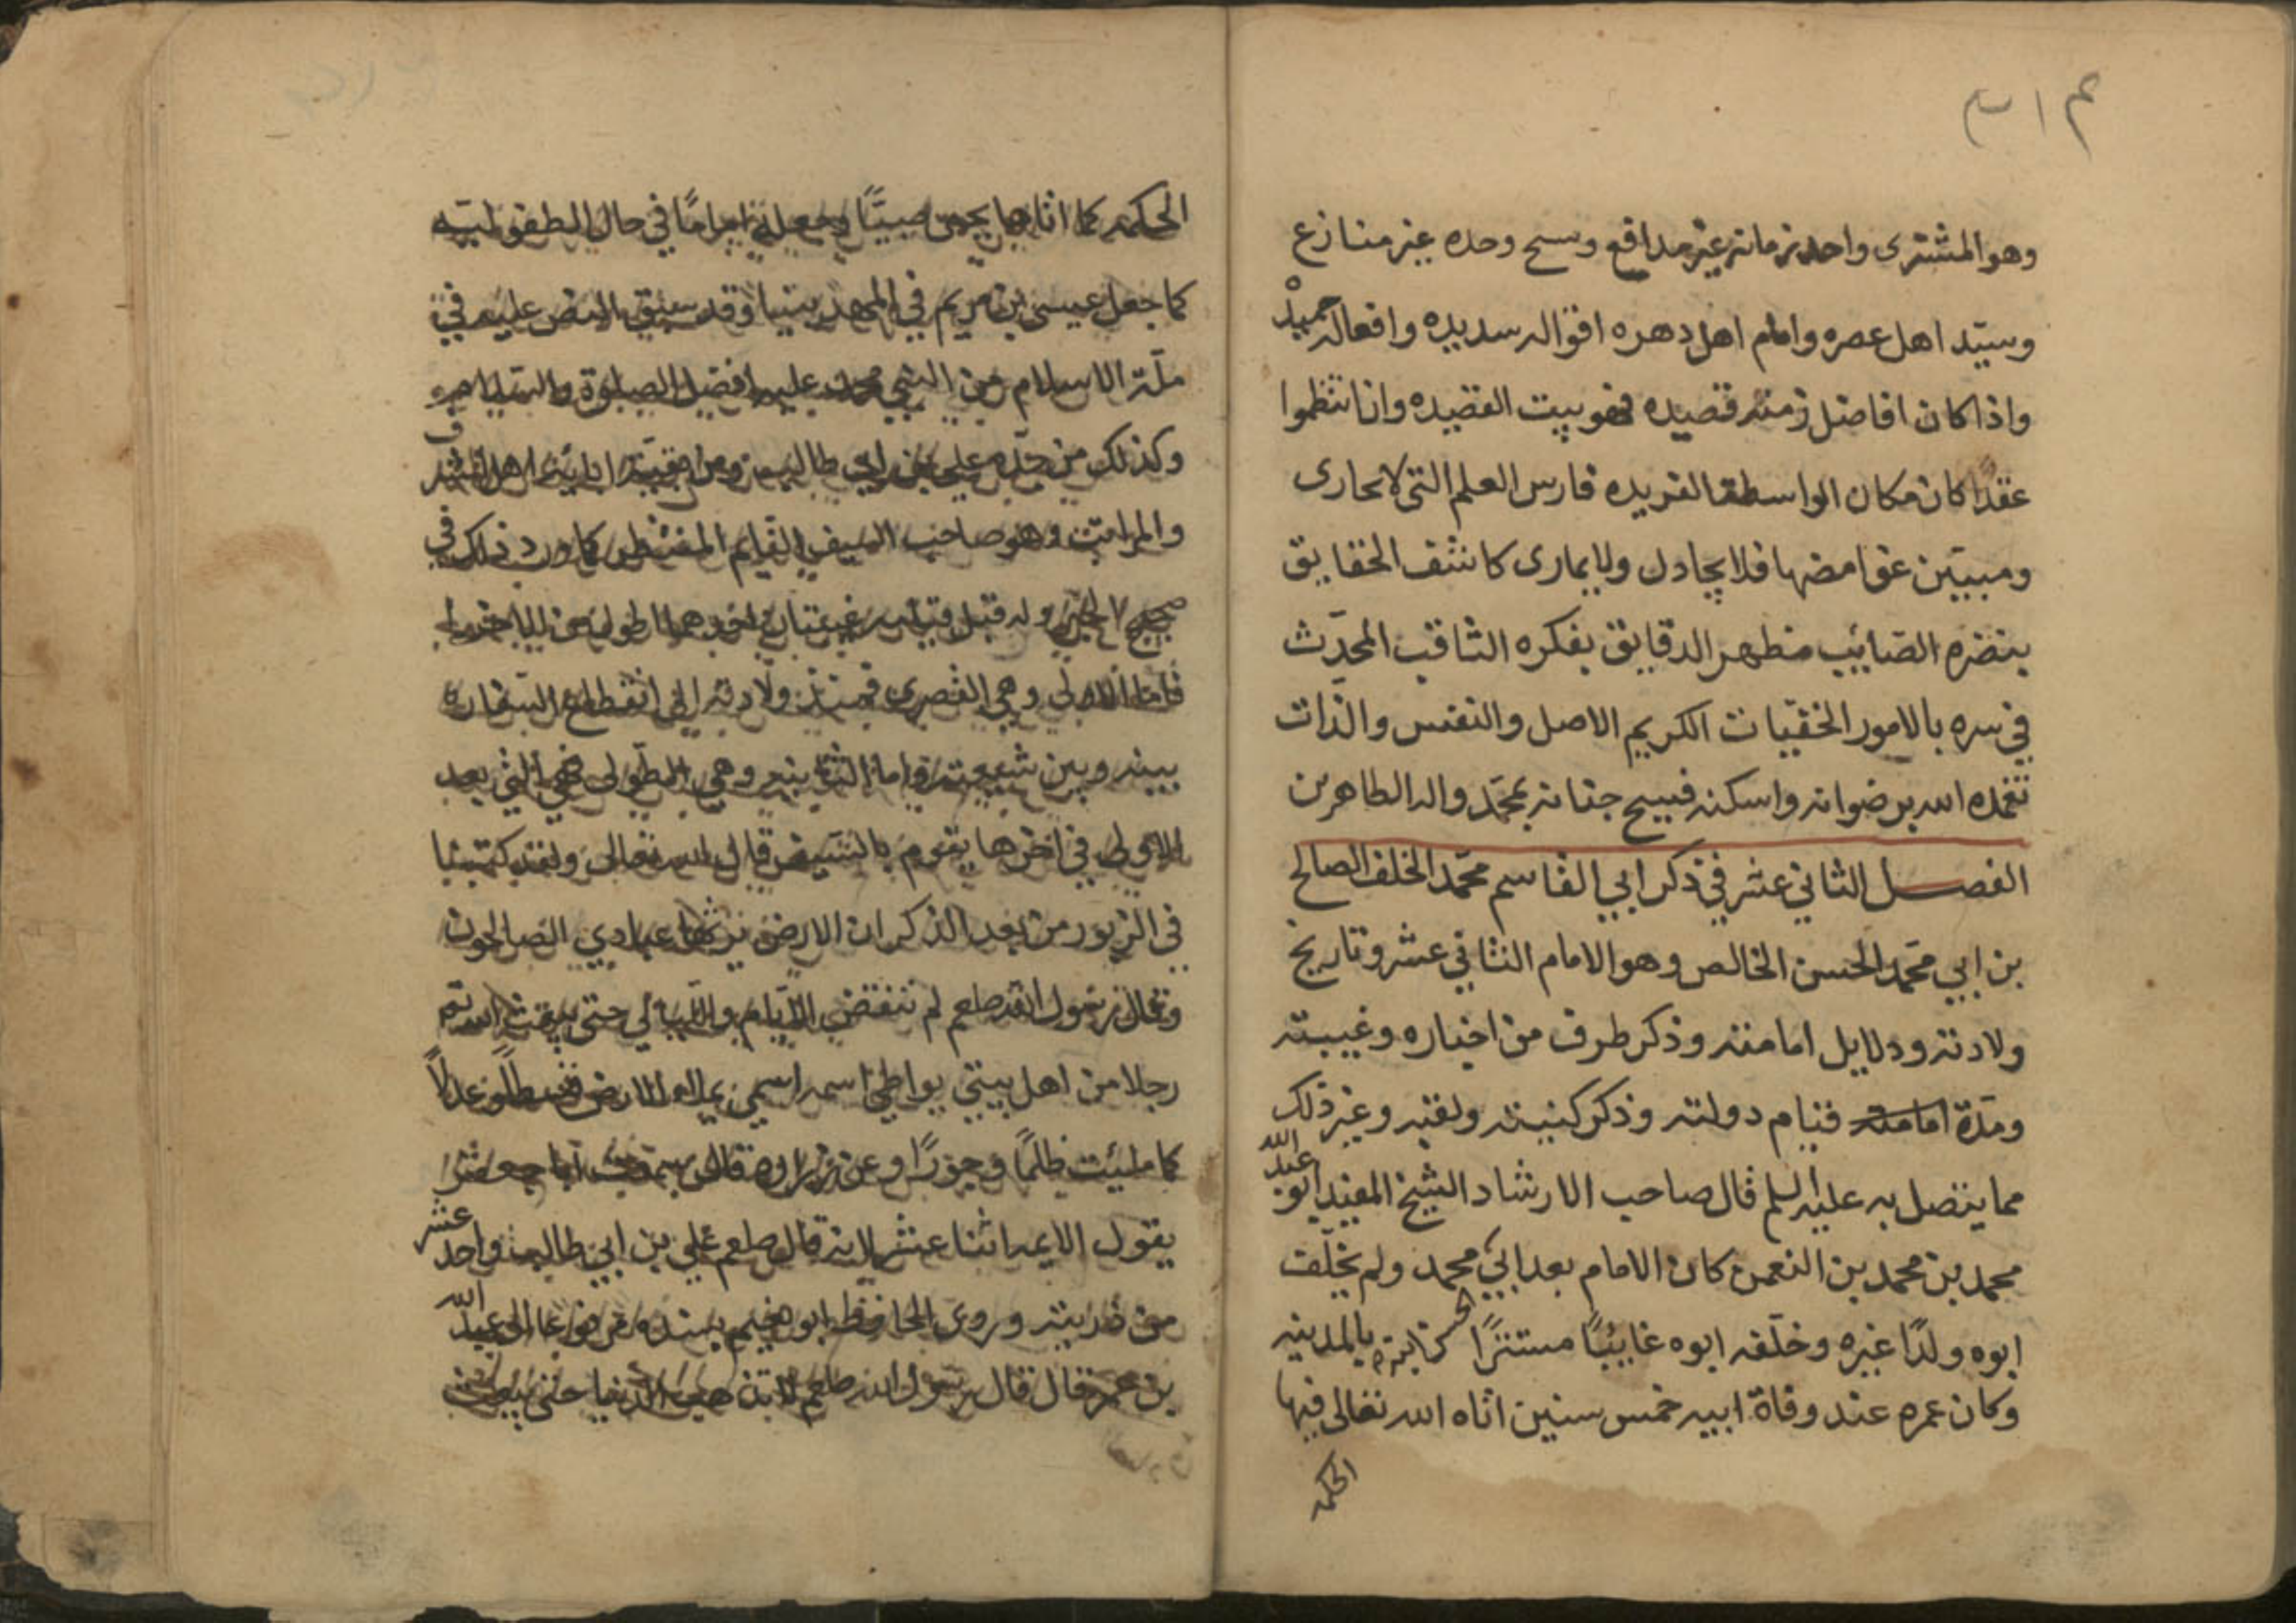 وهو المشترى واحد زمانه غير مدافع ونسيج وحده غير منازع
وسيّد اهل عصره وامام اهل دهره اقواله سديده وافعاله حميدْ
واذا كان افاضل زمنه قصيده فهو بيت القصيده وان انتظموا
عقدًا كان مكان الواسطة الفريده فارس العلم التى لا يجارى
ومبيّن غوامضها فلا يجادل ولا يمارى كاشف الحقايق
بنضره الصّائيب مظهر الدقايق بفكره الثاقب المحدّث
في سره بالامور الخفيّات الكريم الاصل والنفس والذات
تغمده الله برضوانه واسكنه فسيح جنانه بمحمّد واله الطاهرين
الفصل الثاني عشر في ذكر ابي القاسم محمّد الخلف الصالح
بن ابي محمّد الحسن الخالص وهو الامام الثاني عشر وتاريخ
ولادته ودلايل امامته وذكر طرف من اخباره وغيبته
ومدّة قيام دولته وذكر كنيته ولقبه وغير ذلك
مما يتصل به عليه السلم قال صاحب الارشاد الشيخ المفيد ابو عبد الله
محمد بن محمد بن النعمن كان الامام بعد ابي محمد ولم يخلّف
ابوه ولدًا غيره وخلّفه ابوه غايبًا مستترًا بالمدينه
وكان عمره عند وفاة ابيه خمس سنين اتاه الله تعالى فيها
الحكمه
الحكمه كما اتاها يحيى صبيًّا وجعله اماما في حال الطفوليّه
كما جعل عيسى بن مريم في المهد نبيا وقد سبق النص عليه في
ملّة الاسلام من النبي محمد عليه افضل الصلوة والسلام
وكذلك من جدّه علي بن ابي طالب ومن بقيّة ابائه اهل الشرف
والمراتب وهو صاحب السيف القايم المنتظر كما ورد ذلك في
صحيح الخبر وله قبل قيامه غيبتان احدهما اطول من الاخرى
فاما الاولى وهي القصرى فمنذ ولادته الى انقطاع السفاره
بينه وبين شيعته واما الثانيه وهي الطولى فهي التي بعد
الاولى في اخرها يقوم بالسيف قال الله تعالى ولقد كتبنا
في الزبور من بعد الذكر ان الارض يرثها عبادي الصالحون
وقال رسول الله صلعم لم تنقض الايام والليالي حتى يبعث الله
رجلا من اهل بيتي يواطئ اسمه اسمي يملاء الارض قسطًا وعدلاً
كما ملئت ظلمًا وجورًا وعن زراره قال سمعت ابا جعفر
يقول الايمه اثنا عشر قال صلعم علي بن ابي طالب واحد عشر
من ذريته وروى الحافظ ابو نعيم بسنده مرفوعا الى عبد الله
بن عمر قال قال رسول الله صلعم لا تذهب الدنيا حتى يبعث